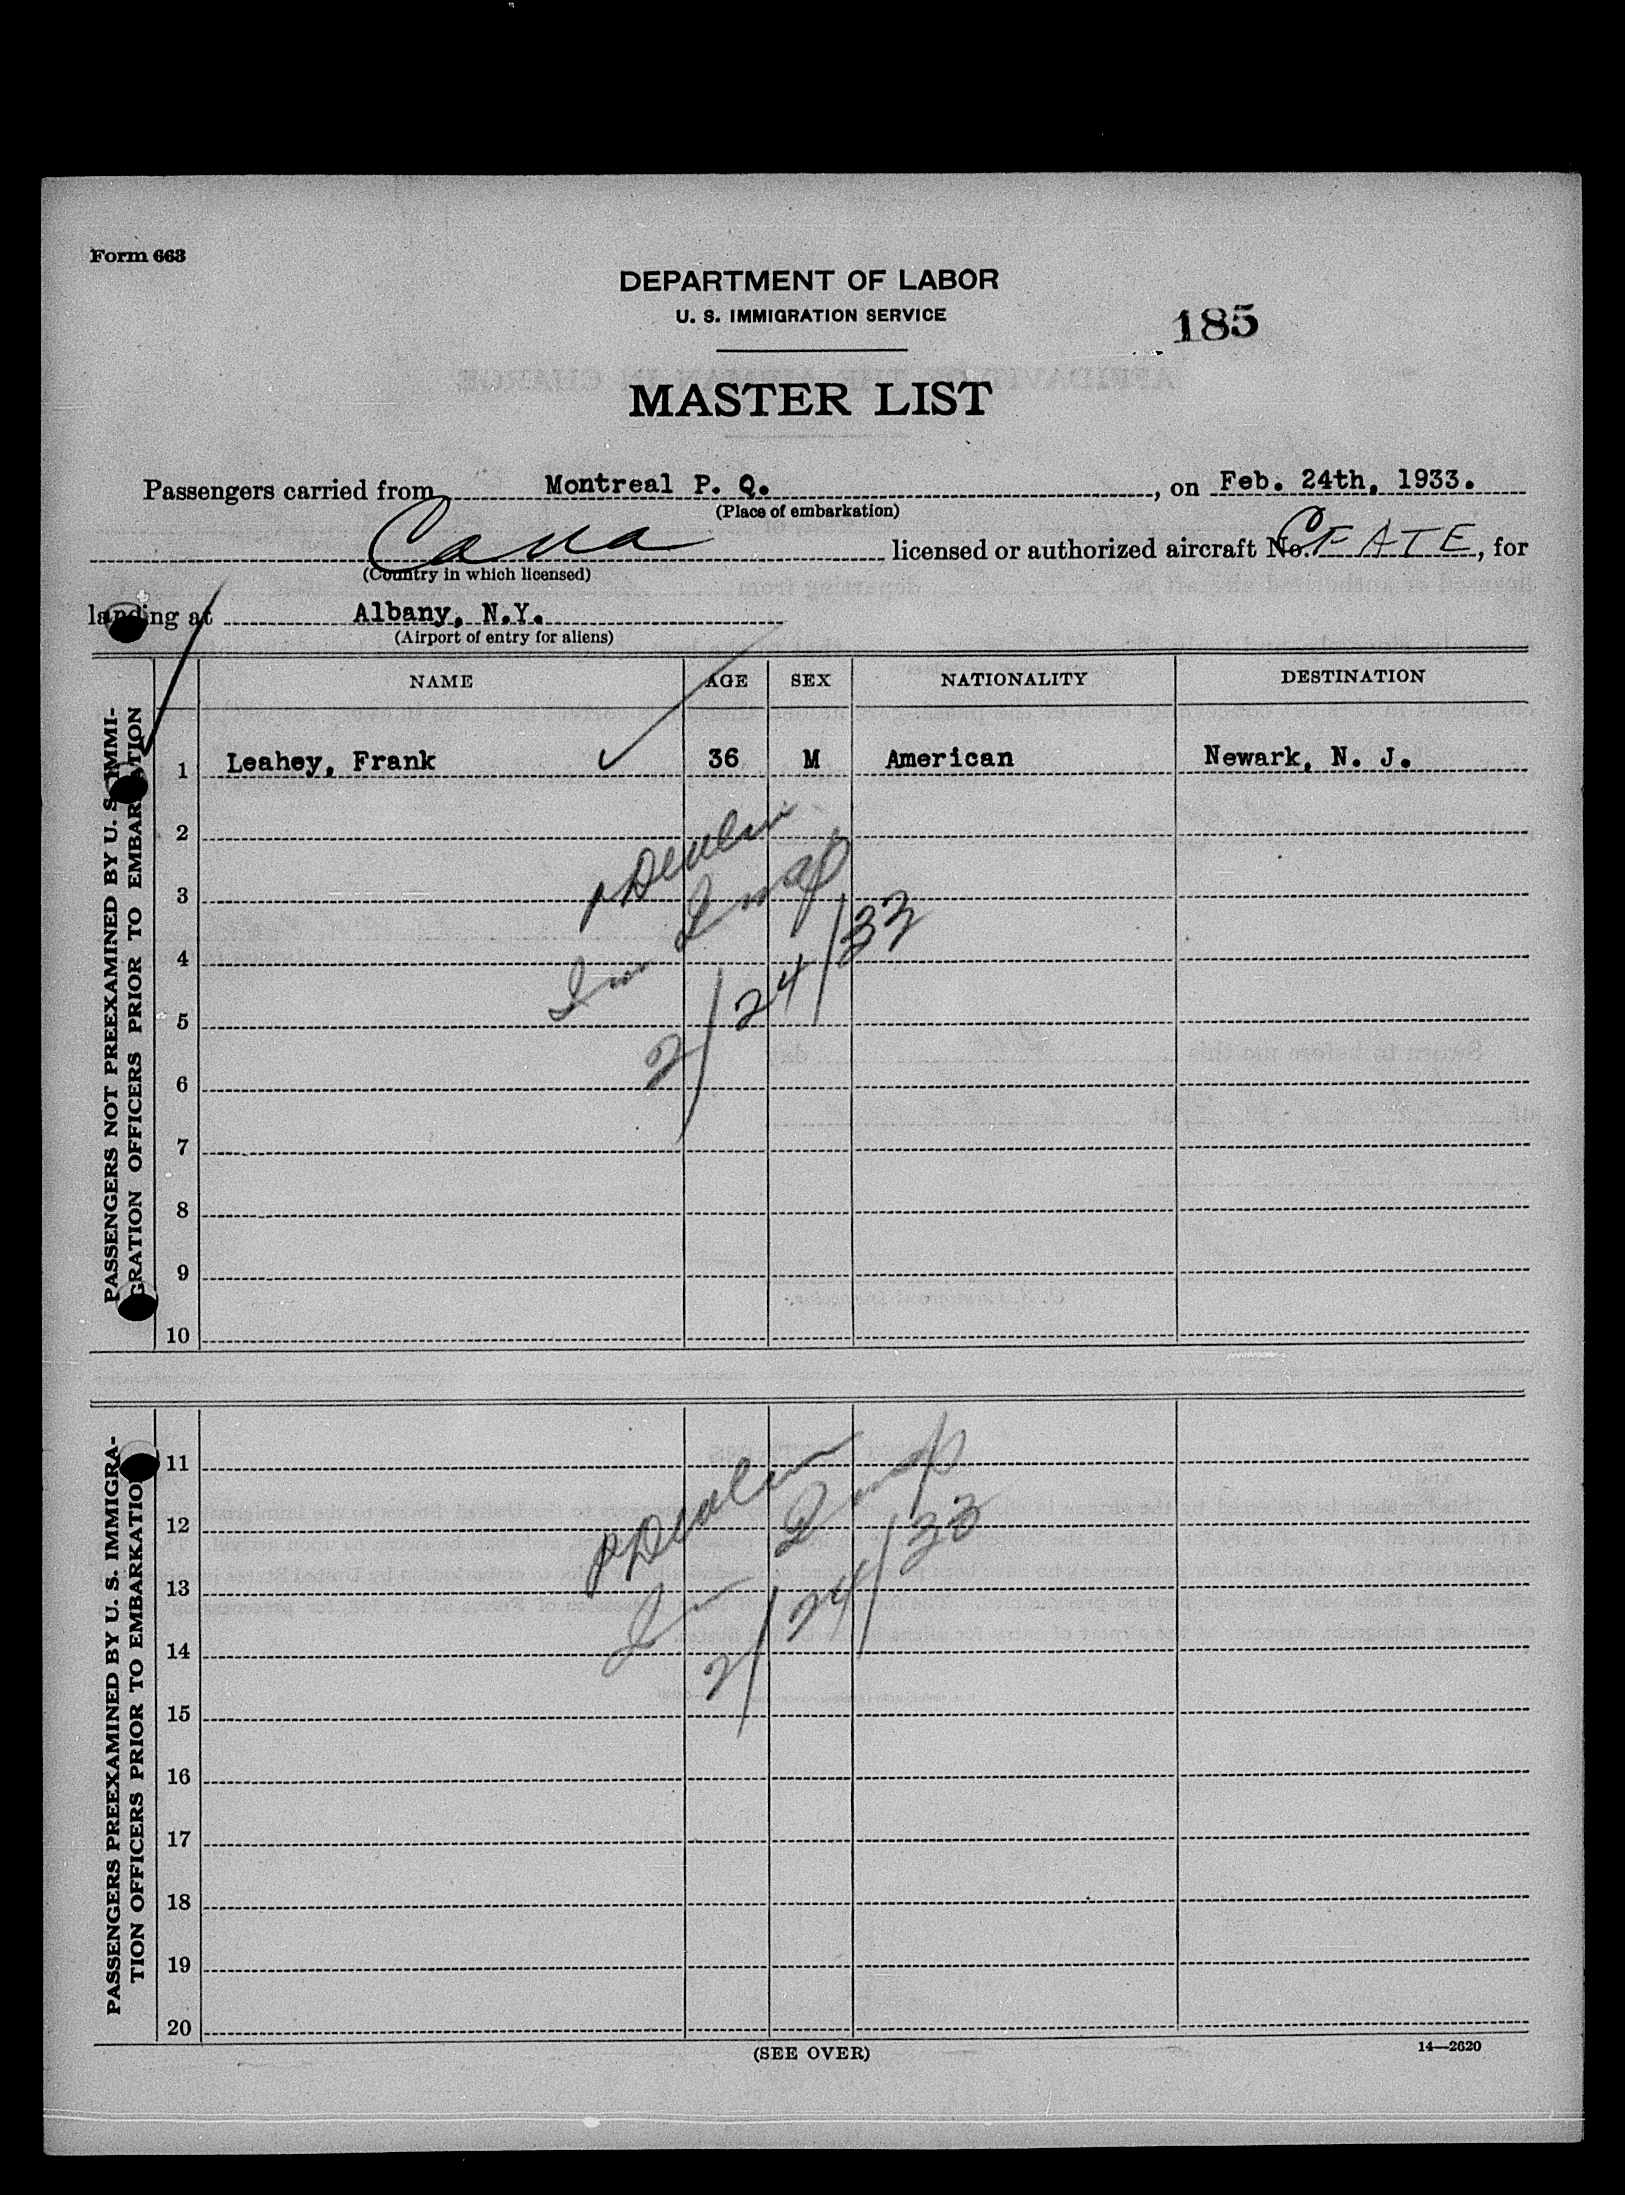 Form 663
DEPARTMENT OF LABOR
U. S. IMMIGRATION SERVICE
185
MASTER LIST
Passengers carried from Montreal P. Q. , on Feb. 24th, 1933.
(Place of embarkation)
Cana licensed or authorized aircraft No. CFATE, for
(Country in which licensed)
landing at Albany, N.Y.
(Airport of entry for aliens)
NAME AGE SEX NATIONALITY DESTINATION
PASSENGERS NOT PREEXAMINED BY U. S. IMMI-
GRATION OFFICERS PRIOR TO EMBARKATION
1 Leahey, Frank 36 M American Newark, N. J.
2
3
4
5
6
7
8
9
10
2/24/33
PASSENGERS PREEXAMINED BY U. S. IMMIGRA-
TION OFFICERS PRIOR TO EMBARKATION
11
12
13
14
15
16
17
18
19
20
2/24/33
(SEE OVER)
14—2620